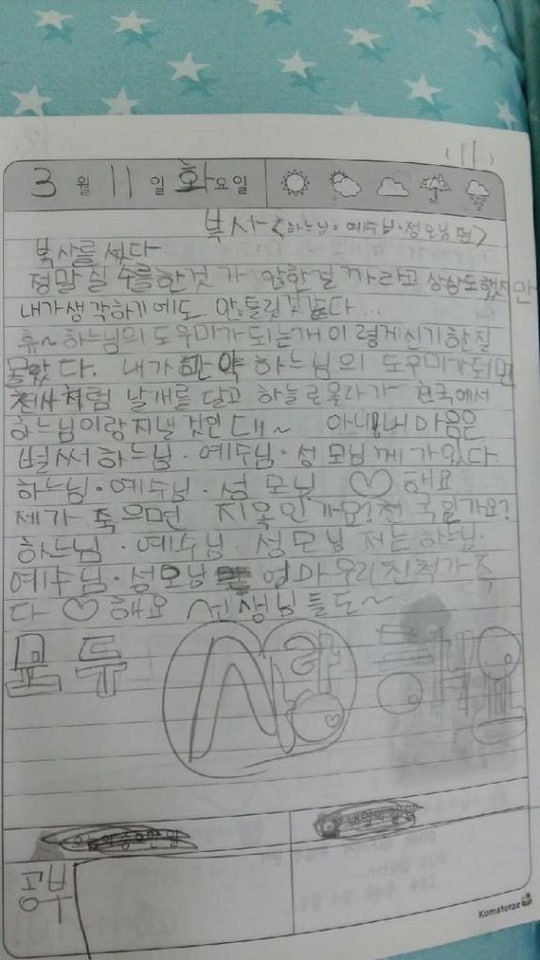 11
3월 11일 화요일
복사<하느님·예수님·성모님 편>
복사를 섰다.
정말 실수를한것 가 암한걸 까라고 상상도했지만
내가생각하기에도 안틀린것같다...
휴~하느님의 도우미가되는개 이렇게신기한질
몰랐다. 내가 만약 하느님의 도우미가되면
천사처럼 날개를 달고 하늘로올라가 천국에서
하느님이랑지낼 것인대~ 아니!내 마음은
벌써하느님·예수님·성모님께가있다
하느님·예수님·성모님 ♡해요
제가 죽으면 지옥인가요?천국일가요?
하느님·예수님·성모님 저는 하느님·
예수님·성모님 엄마우리친척가족
다♡해요 선생님들도~
모두 사랑해요
공부
Komatorae